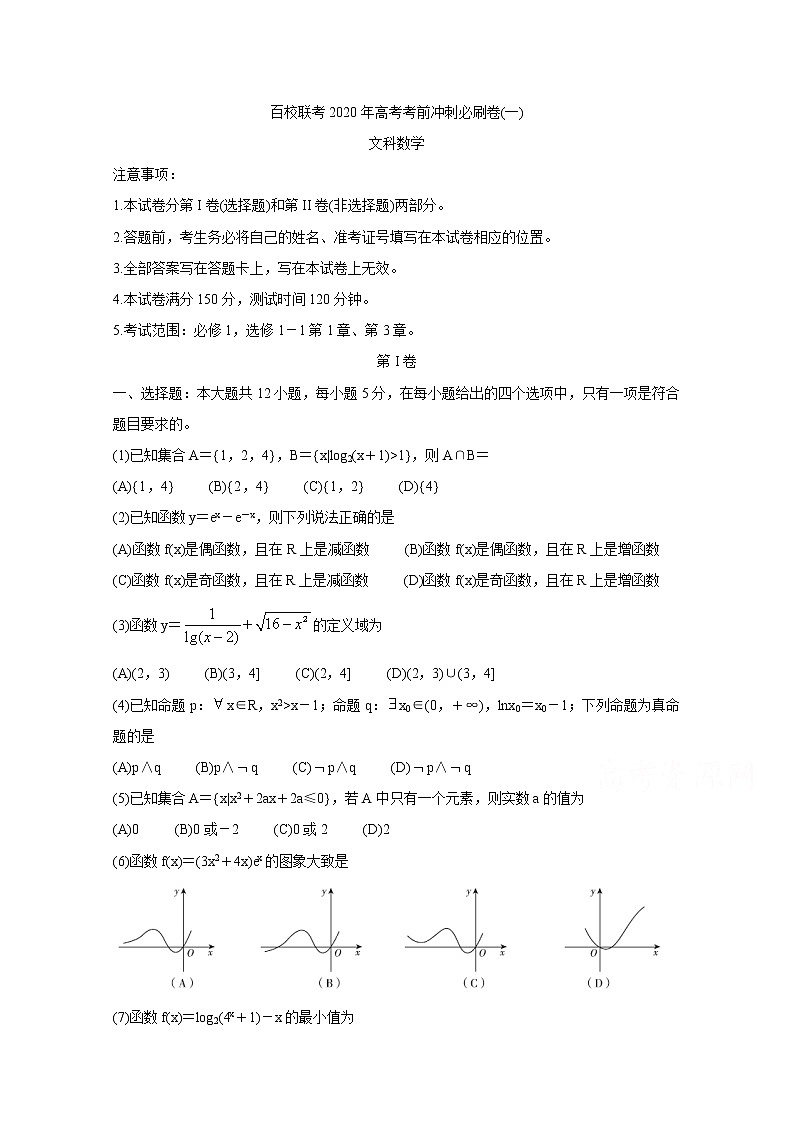 百校联考2020年高考考前冲刺必刷卷(一)
文科数学
注意事项：
1.本试卷分第I卷(选择题)和第II卷(非选择题)两部分。
2.答题前，考生务必将自己的姓名、准考证号填写在本试卷相应的位置。
3.全部答案写在答题卡上，写在本试卷上无效。
4.本试卷满分150分，测试时间120分钟。
5.考试范围：必修1，选修1－1第1章、第3章。
第I卷
一、选择题：本大题共12小题，每小题5分，在每小题给出的四个选项中，只有一项是符合
题目要求的。
(1)已知集合A＝{1，2，4}，B＝{x|log₂(x＋1)>1}，则A∩B＝
(A){1，4} (B){2，4} (C){1，2} (D){4}
(2)已知函数y＝eˣ－e⁻ˣ，则下列说法正确的是
(A)函数f(x)是偶函数，且在R上是减函数 (B)函数f(x)是偶函数，且在R上是增函数
(C)函数f(x)是奇函数，且在R上是减函数 (D)函数f(x)是奇函数，且在R上是增函数
(3)函数y＝1/lg(x－2)＋√(16－x²)的定义域为
(A)(2，3) (B)(3，4] (C)(2，4] (D)(2，3)∪(3，4]
(4)已知命题p：∀x∈R，x²>x－1；命题q：∃x₀∈(0，＋∞)，lnx₀＝x₀－1；下列命题为真命
题的是
(A)p∧q (B)p∧¬q (C)¬p∧q (D)¬p∧¬q
(5)已知集合A＝{x|x²＋2ax＋2a≤0}，若A中只有一个元素，则实数a的值为
(A)0 (B)0或－2 (C)0或2 (D)2
(6)函数f(x)＝(3x²＋4x)eˣ的图象大致是
y y y y
O x O x O x O x
(A) (B) (C) (D)
(7)函数f(x)＝log₂(4ˣ＋1)－x的最小值为